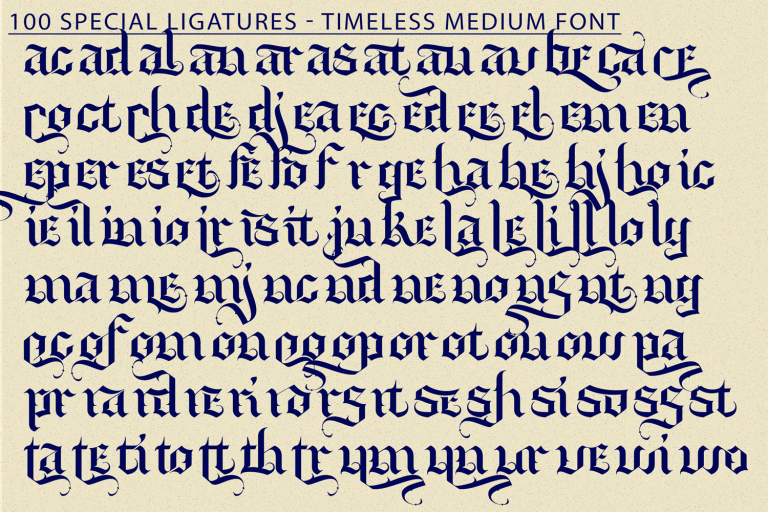 100 SPECIAL LIGATURES - TIMELESS MEDIUM FONT
ac ad al an ar as at au av be ca ce
co ct ch de dj ea ec ed ee el em en
ep er es et fe fo fr ge ha he hj ho ic
ie il in io ir is it ju ke la le li ll lo ly
ma me mj nc nd ne no ns nt ng
oc of om on oo op or ot ou ow pa
pr ra rd re ri ro rs rt se sh si so ss st
ta te ti to tt th tr um un ur ve wi wo